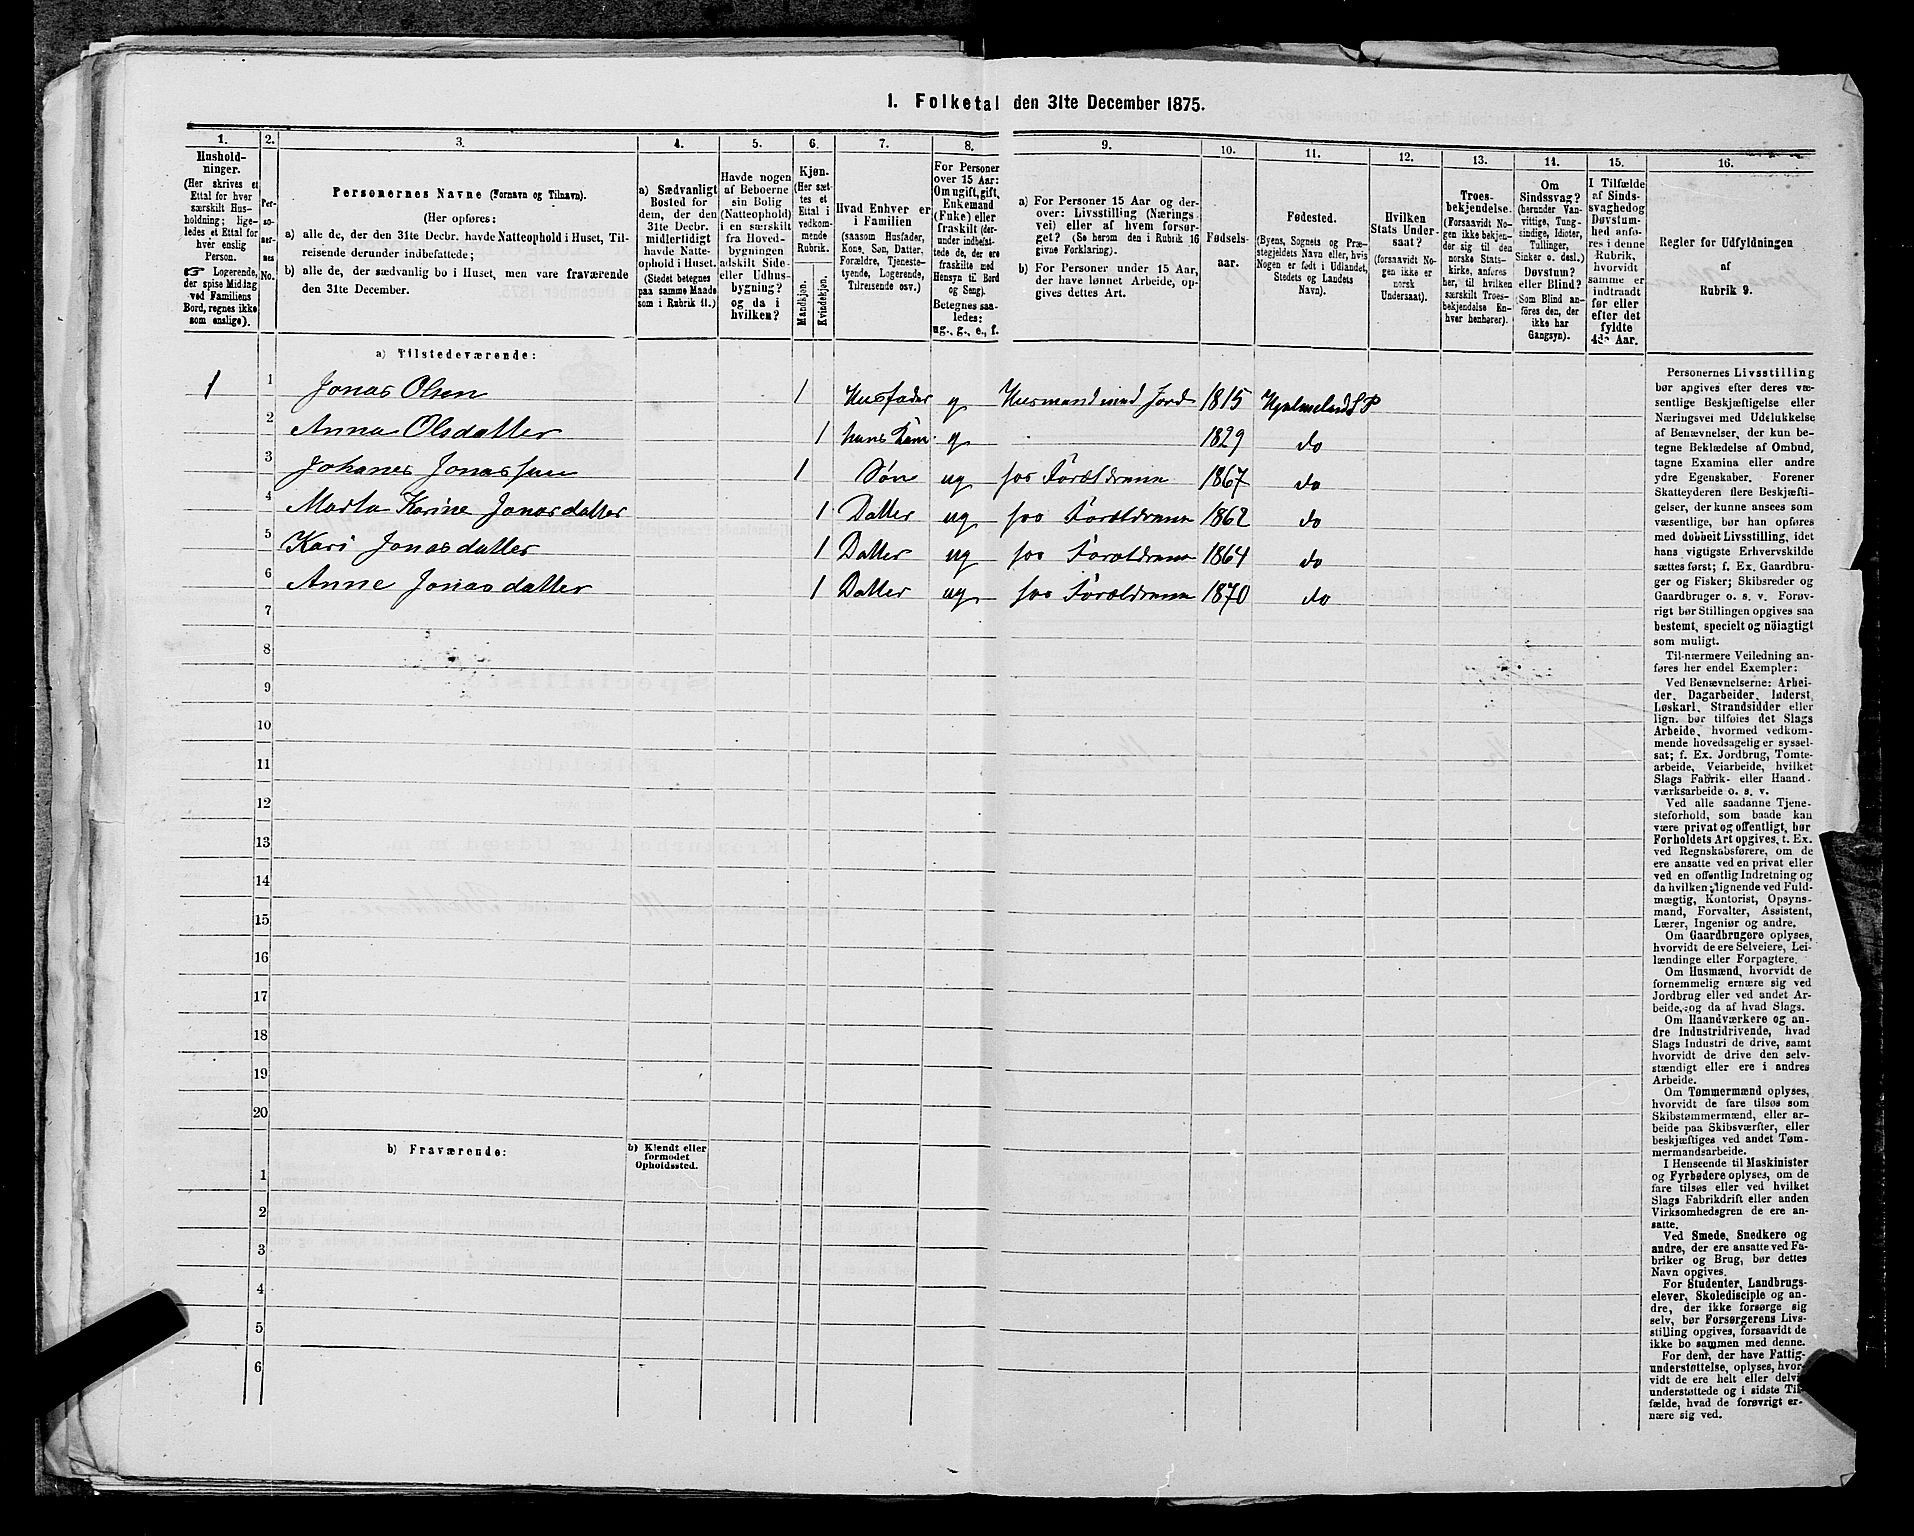 1. Folketal den 31te December 1875.
1. 2. 3. 4. 5. 6. 7. 8. 9. 10. 11. 12. 13. 14. 15. 16.
Hushold-
ninger.
(Her skrives et
Ettal for hver
særskilt Hus-
holdning; lige-
ledes et Ettal for
hver enslig
Person.
☞ Logerende,
der spise Middag
ved Familiens
Bord, regnes ikke
som enslige).
Per-
so-
ner-
nes
No.
Personernes Navne (Fornavn og Tilnavn).
(Her opføres:
a) alle de, der den 31te Decbr. havde Natteophold i Huset, Til-
reisende derunder indbefattede;
b) alle de, der sædvanlig bo i Huset, men vare fraværende
den 31te December.
a) Sædvanligt
Bosted for
dem, der den
31te Decbr.
midlertidigt
havde Natte-
ophold i Huset.
(Stedet betegnes
paa samme Maade
som i Rubrik 11.)
Havde nogen
af Beboerne
sin Bolig
(Natteophold)
i en særskilt
fra Hoved-
bygningen
adskilt Side-
eller Udhus-
bygning?
og da i
hvilken?
Kjøn.
(Her sæt-
tes et
Ettal i
vedkom-
mende
Rubrik.
Mandkjøn.
Kvindekjøn.
Hvad Enhver er
i Familien
(saasom Husfader,
Kone, Søn, Datter,
Forældre, Tjeneste-
tyende, Logerende,
Tilreisende osv.)
For Personer
over 15 Aar:
Om ugift, gift,
Enkemand
(Enke) eller
fraskilt (der-
under indbefat-
tede de, der ere
fraskilte med
Hensyn til Bord
og Seng).
Betegnes saa-
ledes:
ug., g., e., f.
a) For Personer 15 Aar og der-
over: Livsstilling (Nærings
vei) eller af hvem forsør-
get? (Se herom den i Rubrik 16
givne Forklaring).
b) For Personer under 15 Aar,
der have lønnet Arbeide, op-
gives dettes Art.
Fødsels-
aar.
Fødested.
(Byens, Sognets og Præ-
stegjeldets Navn eller, hvis
Nogen er født i Udlandet,
Stedets og Landets
Navn).
Hvilken
Stats Under-
saat?
(forsaavidt No-
gen ikke er
norsk
Undersaat).
Troes-
bekjendelse.
(Forsaavidt No-
gen ikke bekjen-
der sig til den
norske Stats-
kirke, anføres
her, til hvilken
særskilt Troes-
bekjendelse En-
hver henhører).
Om
Sindssvag?
(herunder Van-
vittige, Tung-
sindige, Idioter,
Tullinger,
Sinker o. desl.)
Døvstum?
eller Blind?
(Som Blind an-
føres den, der
ikke har
Gangsyn).
I Tilfælde
af Sinds-
svaghedog
Døvstum-
hed anfø-
res i denne
Rubrik,
hvorvidt
samme er
indtraadt
før eller
efter det
fyldte
4de Aar.
Regler for Udfyldningen
af
Rubrik 9.
a) Tilstedeværende:
1 1 Jonas Olsen 1 Husfader g Husmand med Jord 1815 Hjelmeland S P
2 Anna Olsdatter 1 hans Kone g 1829 do
3 Johanes Jonassen 1 Søn ug hos Forældrene 1867 do
4 Marta Karine Jonasdatter 1 Datter ug hos Forældrene 1862 do
5 Kari Jonasdatter 1 Datter ug hos Forældrene 1864 do
6 Anne Jonasdatter 1 Datter ug hos Forældrene 1870 do
7
8
9
10
11
12
13
14
15
16
17
18
19
20
b) Fraværende:
b) Kjendt eller
formodet
Opholdssted.
1
2
3
4
5
6
Personernes Livsstilling
bør angives efter deres væ-
sentlige Beskjæftigelse eller
Næringsvei med Udelukkelse
af Benævnelser, der kun be-
tegne Beklædelse af Ombud,
tagne Examina eller andre
ydre Egenskaber. Forener
Skatteyderen flere Beskjæfti-
gelser, der kunne ansees som
væsentlige, bør han opføres
med dobbelt Livsstilling, idet
hans vigtigste Erhvervskilde
sættes først; f. Ex. Gaardbru-
ger og Fisker; Skibsreder og
Gaardbruger o. s. v. Forøv-
rigt bør Stillingen opgives saa
bestemt, specielt og nöiagtigt
som muligt.
Til nærmere Veiledning an-
føres her endel Exempler:
Ved Benævnelserne: Arbei-
der, Dagarbeider, Inderst,
Løskarl, Strandsidder eller
lign. bør tilføies det Slags
Arbeide, hvormed vedkom-
mende hovedsagelig er syssel-
sat; f. Ex. Jordbrug, Tomte-
arbeide, Veiarbeide, hvilket
Slags Fabrik- eller Haand-
værksarbeide o. s. v.
Ved alle saadanne Tjene-
steforhold, som baade kan
være privat og offentligt, bør
Forholdets Art opgives, t. Ex.
ved Regnskabsførere, om de
ere ansatte ved en privat eller
ved en offentlig Indretning og
da hvilken; lignende ved Fuld-
mægtig, Kontorist, Opsyns-
mand, Forvalter, Assistent,
Lærer, Ingeniør og andre.
Om Gaardbrugere oplyses,
hvorvidt de ere Selveiere, Lei-
lændinge eller Forpagtere.
Om Husmænd, hvorvidt de
fornemmelig ernære sig ved
Jordbrug eller ved andet Ar-
beide, og da af hvad Slags.
Om Haandværkere og an-
dre Industridrivende, hvad
Slags Industri de drive, samt
hvorvidt de drive den selv-
stændigt eller ere i andres
Arbeide.
Om Tømmermænd oplyses,
hvorvidt de fare tilsøs som
Skibstømmermænd, eller ar-
beide paa Skibsværfter, eller
beskjæftiges ved andet Tøm-
mermandsarbeide.
I Henseende til Maskinister
og Fyrbødere oplyses, om de
fare tilsøs eller ved hvilket
Slags Fabrikdrift eller anden
Virksomhedsgren de ere an-
satte.
Ved Smede, Snedkere og
andre, der ere ansatte ved Fa-
briker og Brug, bør dettes
Navn opgives.
For Studenter, Landbrugs-
elever, Skoledisciple og an-
dre, der ikke forsørge sig
selv, bør Forsørgerens Livs-
stilling opgives, forsaavidt de
ikke bo sammen med denne.
For dem, der have Fattig-
understøttelse, oplyses, hvor-
vidt de ere helt eller delvis
understøttede og i sidste Til-
fælde, hvad de forøvrigt er-
nære sig ved.